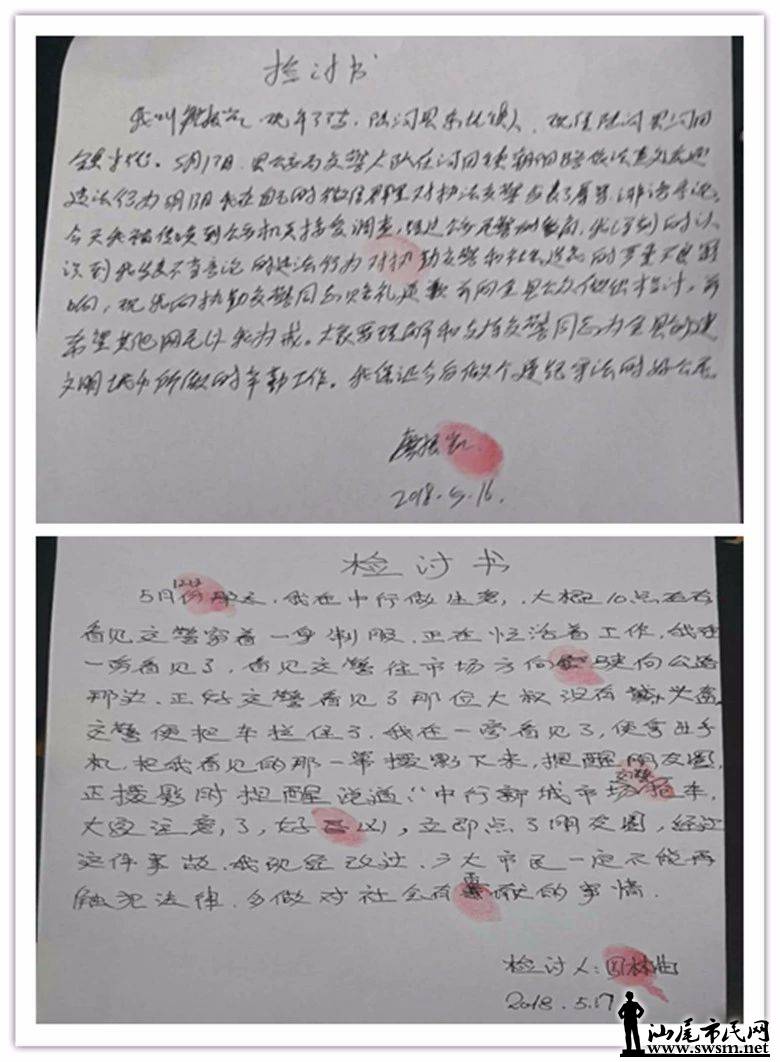 检讨书
我叫 现年 岁,陆河县东坑镇人,现住陆河县河田
镇 。5月17日,县公安局交警大队在河田镇朝阳路依法查处交通
违法行为时,我在自己的微信群里对执法交警发表了辱骂、诽谤言论。
今天我被传唤到公安机关接受调查,经过公安民警 ,我深刻的认
识到我发表不当言论的违法行为对执勤交警和社会造成的严重不良影
响,现我向执勤交警同志赔礼道歉并向全县公众做出检讨,并
希望其他网民以我为戒。大家要理解和支持交警同志为全县创建
文明城市所做的辛勤工作。我保证今后做个遵纪守法的好公民。
2018.5.16.
检讨书
5月12日那天,我在中行做生意,大概10点左右
看见交警穿着一身制服,正在忙活着工作,我在
一旁看见了,看见交警往市场方向 驶向公路
那边,正好交警看见了那位大叔没有戴头盔
交警便把车拦住了,我在一旁看见了,便拿出手
机,把我看见的那一幕摄影下来,提醒朋友圈,
正摄影时提醒说道:“中行新城市场交警拖车,
大家注意了,好 以,立即点了朋友圈,经过
这件事故,我现经改过,广大市民一定不能再
触犯法律,多做对社会有贡献的事情.
检讨人:
2018.5.17
汕尾市民网
www.swsm.net